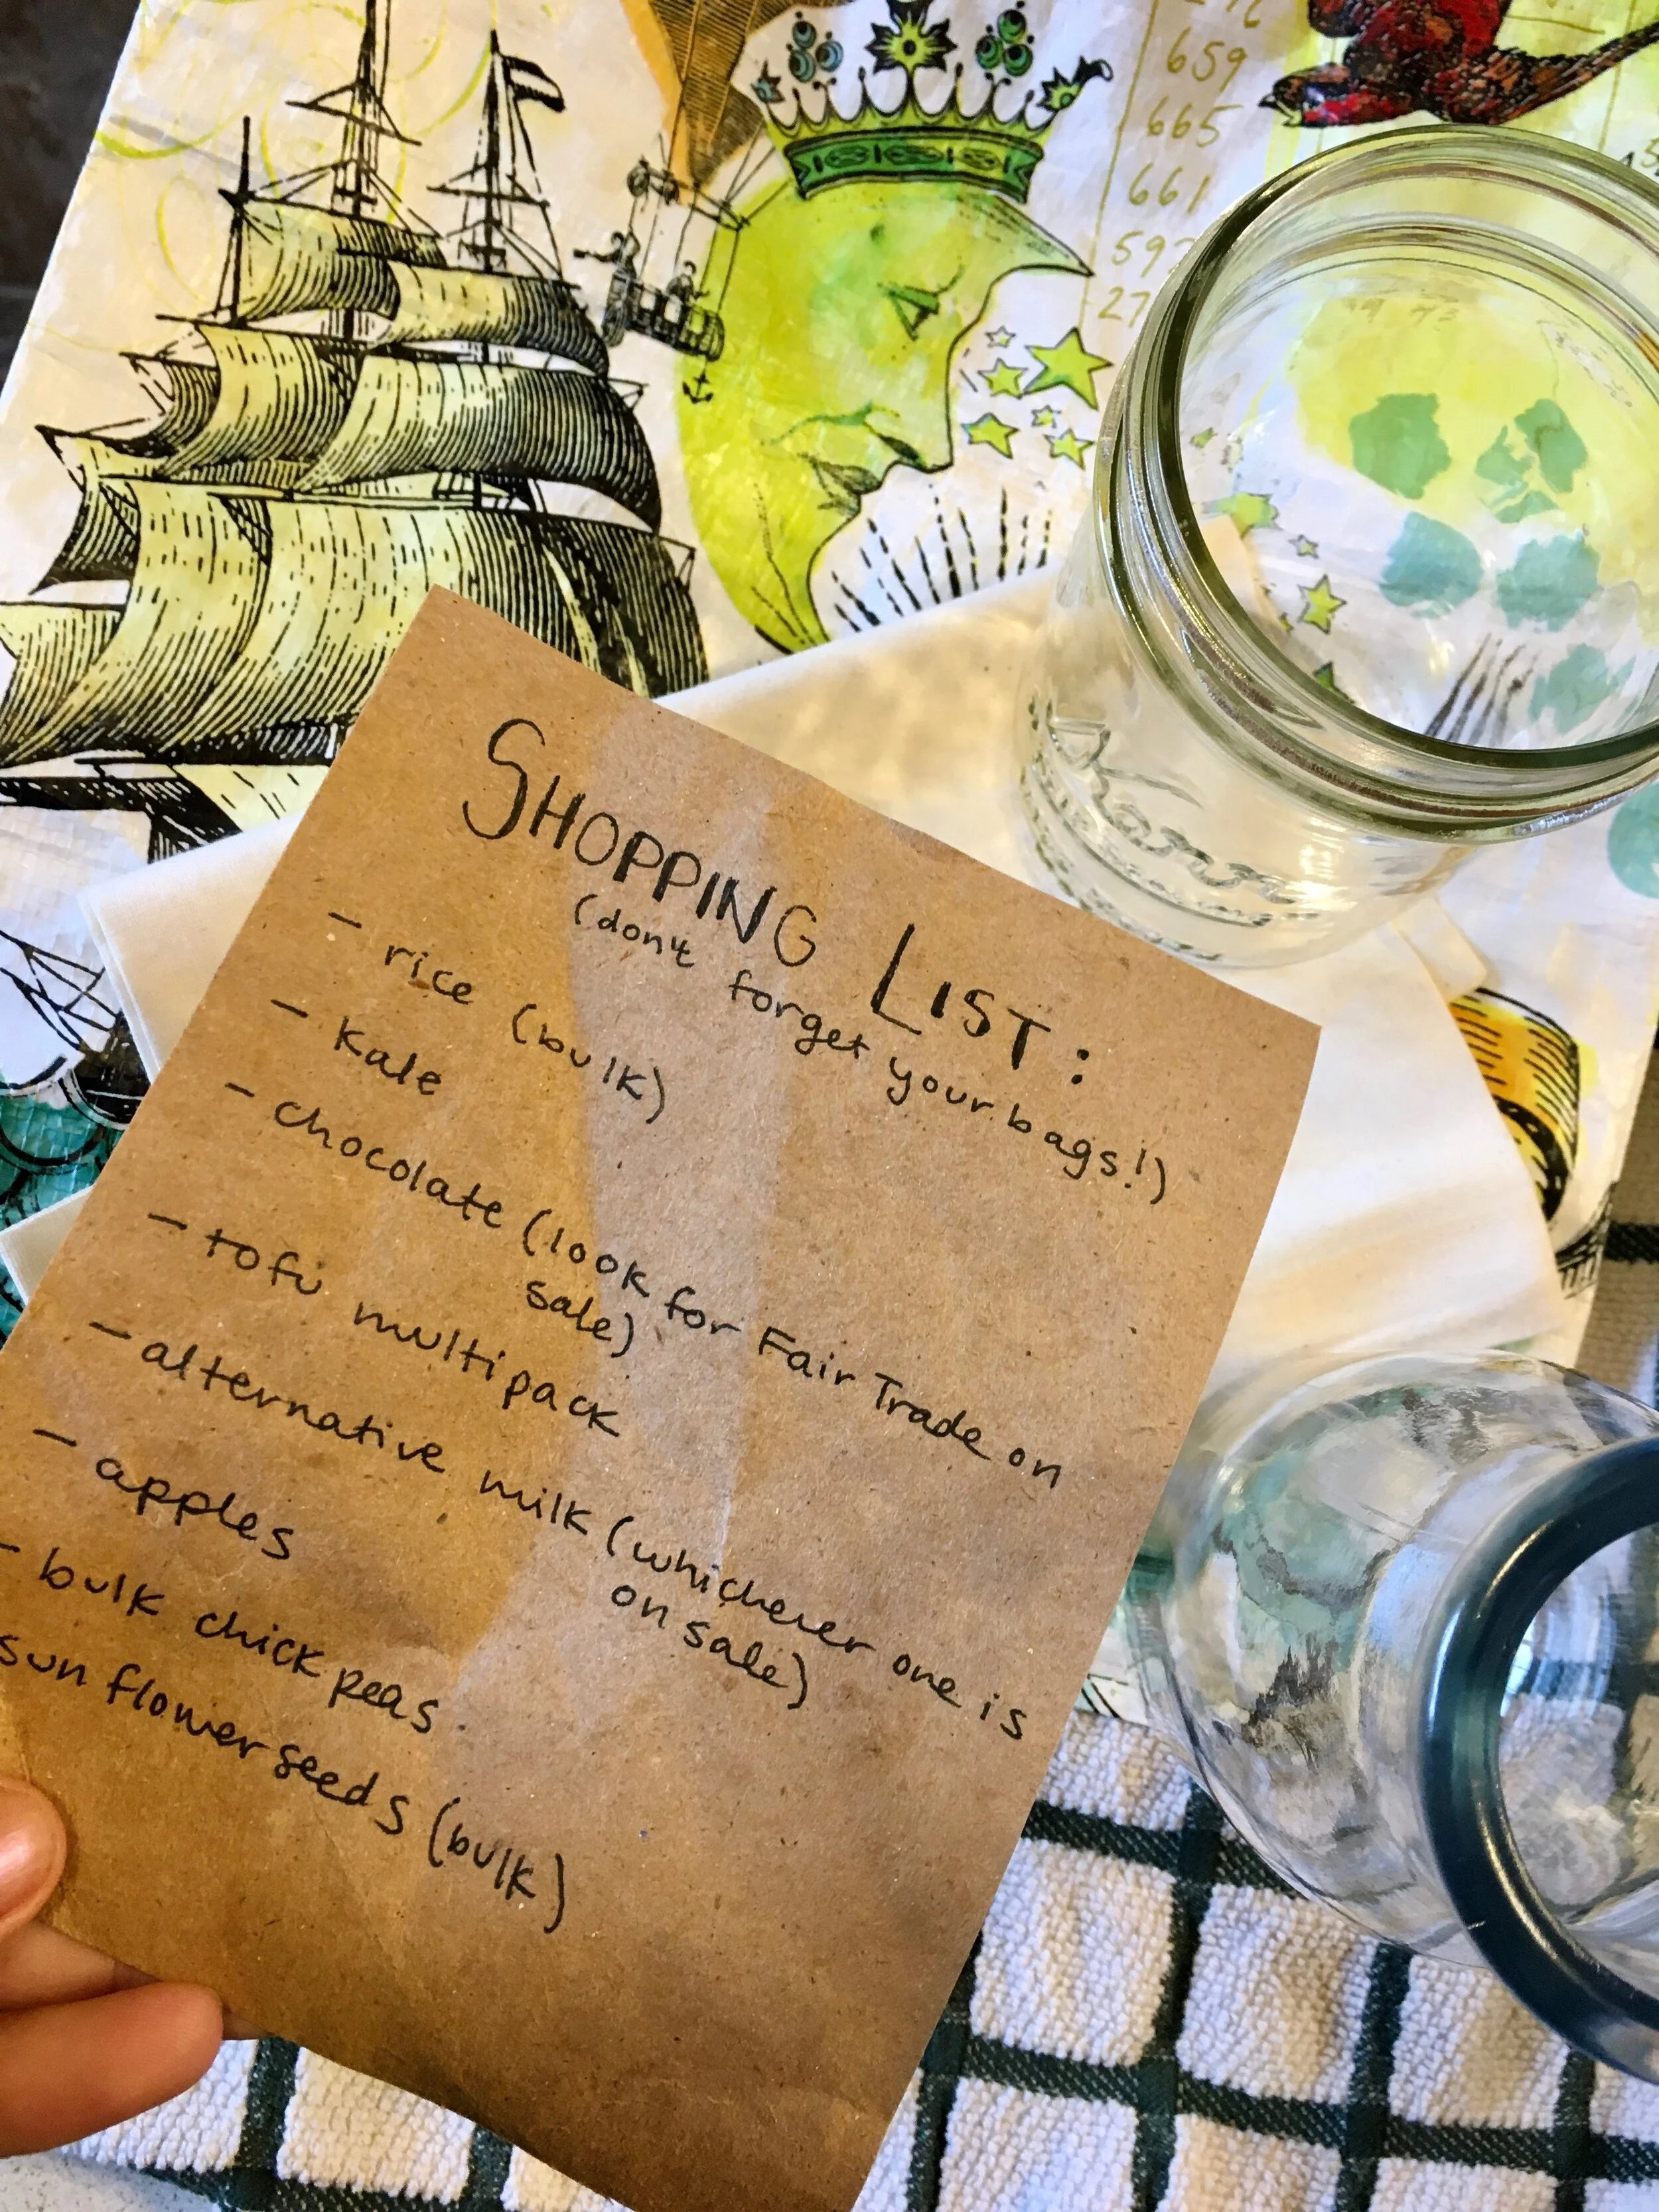 SHOPPING LIST:
(don't forget your bags!)
- rice (bulk)
- kale
- chocolate (look for Fair Trade on
sale)
- tofu multipack
- alternative milk (whichever one is
on sale)
- apples
- bulk chickpeas
sunflower seeds (bulk)
659
665
661
Kerr